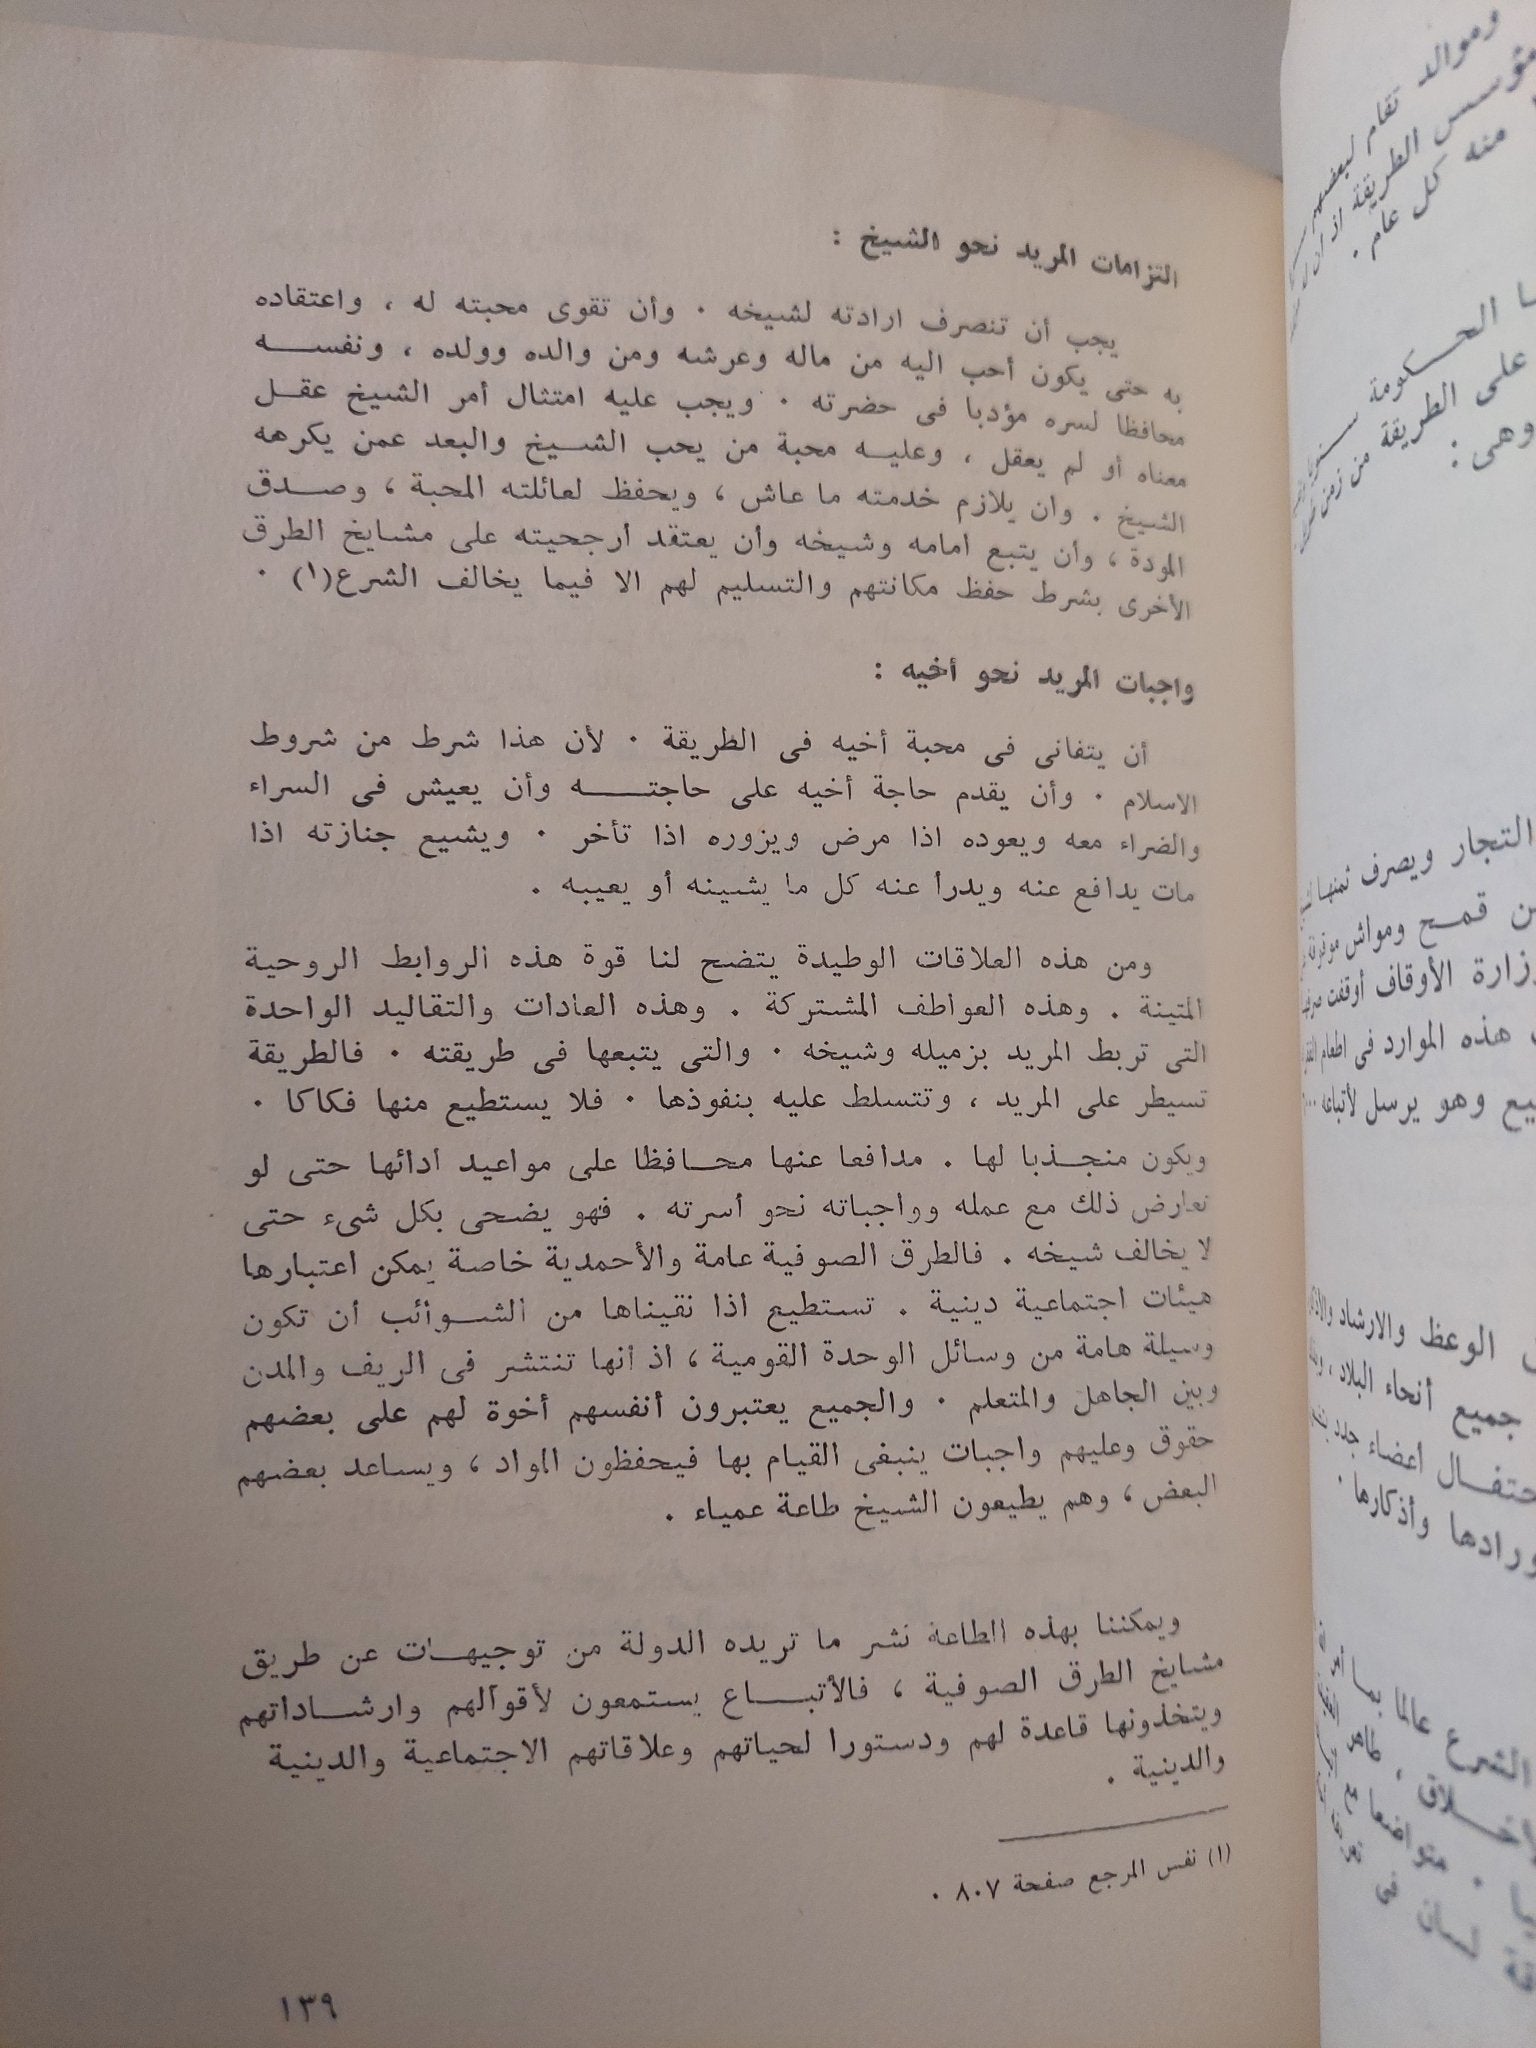 التزامات المريد نحو الشيخ :
يجب أن تنصرف ارادته لشيخه ٠ وأن تقوى محبته له ، واعتقاده
به حتى يكون أحب اليه من ماله وعرشه ومن والده وولده ، ونفسه
محافظا لسره مؤدبا فى حضرته ٠ ويجب عليه امتثال أمر الشيخ عقل
معناه أو لم يعقل ، وعليه محبة من يحب الشيخ والبعد عمن يكرهه
الشيخ . وان يلازم خدمته ما عاش ، ويحفظ لعائلته المحبة ، وصدق
المودة ، وأن يتبع امامه وشيخه وأن يعتقد أرجحيته على مشايخ الطرق
الأخرى بشرط حفظ مكانتهم والتسليم لهم الا فيما يخالف الشرع(١) ٠
واجبات المريد نحو أخيه :
أن يتفانى فى محبة أخيه فى الطريقة ٠ لأن هذا شرط من شروط
الاسلام ٠ وأن يقدم حاجة أخيه على حاجته وأن يعيش فى السراء
والضراء معه ويعوده اذا مرض ويزوره اذا تأخر ٠ ويشيع جنازته اذا
مات يدافع عنه ويدرأ عنه كل ما يشينه أو يعيبه .
ومن هذه العلاقات الوطيدة يتضح لنا قوة هذه الروابط الروحية
المتينة . وهذه العواطف المشتركة . وهذه العادات والتقاليد الواحدة
التى تربط المريد بزميله وشيخه ٠ والتى يتبعها فى طريقته ٠ فالطريقة
تسيطر على المريد ، وتتسلط عليه بنفوذها ٠ فلا يستطيع منها فكاكا ٠
ويكون منجذبا لها . مدافعا عنها محافظا على مواعيد ادائها حتى لو
تعارض ذلك مع عمله وواجباته نحو أسرته . فهو يضحى بكل شىء حتى
لا يخالف شيخه . فالطرق الصوفية عامة والأحمدية خاصة يمكن اعتبارها
هيئات اجتماعية دينية . تستطيع اذا نقيناها من الشوائب أن تكون
وسيلة هامة من وسائل الوحدة القومية ، اذ أنها تنتشر فى الريف والمدن
وبين الجاهل والمتعلم ٠ والجميع يعتبرون أنفسهم أخوة لهم على بعضهم
حقوق وعليهم واجبات ينبغى القيام بها فيحفظون المواد ، ويساعد بعضهم
البعض ، وهم يطيعون الشيخ طاعة عمياء .
ويمكننا بهذه الطاعة نشر ما تريده الدولة من توجيهات عن طريق
مشايخ الطرق الصوفية ، فالأتباع يستمعون لأقوالهم وارشاداتهم
ويتخذونها قاعدة لهم ودستورا لحياتهم وعلاقاتهم الاجتماعية والدينية
والدينية .
(١) نفس المرجع صفحة ٨٠٧ ٠
١٣٩
وموالد تقام لبعضهم
مؤسس الطريقة اذ أن
منه كل عام .
الحكومة
على الطريقة من زمن
وهى :
التجار ويصرف ثمنها
قمح ومواش موقوفة
وزارة الأوقاف أوقفت
هذه الموارد فى اطعام
وهو يرسل لأتباعه
الوعظ والارشاد
جميع أنحاء البلاد ،
أعضاء جدد
وأذكارها .